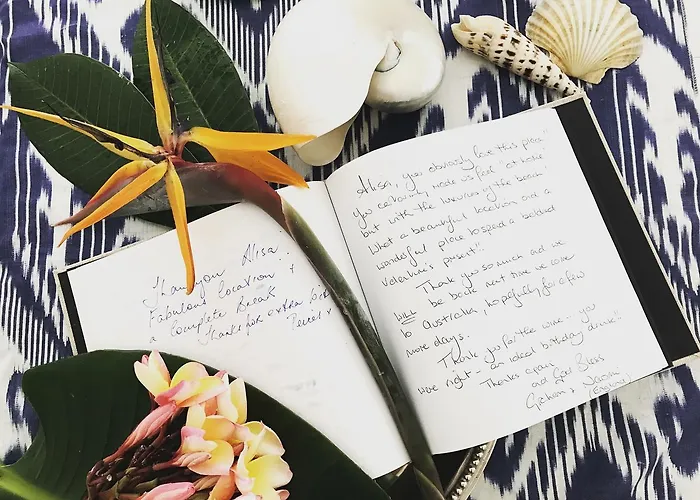 Thank you Alisa..
Fabulous location +
a complete break
Thanks for extra bits
Alisa, you obviously love this place!!
You certainly made us feel "at home
but with the luxuries of the beach
What a beautiful location and a
wonderful place to spend a belated
Valentine's present!!
Thank you so much and we
WILL be back next time we come
to Australia, hopefully for a few
more days.
Thank you for the wine - you
were right - an ideal birthday drink!!
Thanks again
and God Bless
Graham + Naomi
(England)